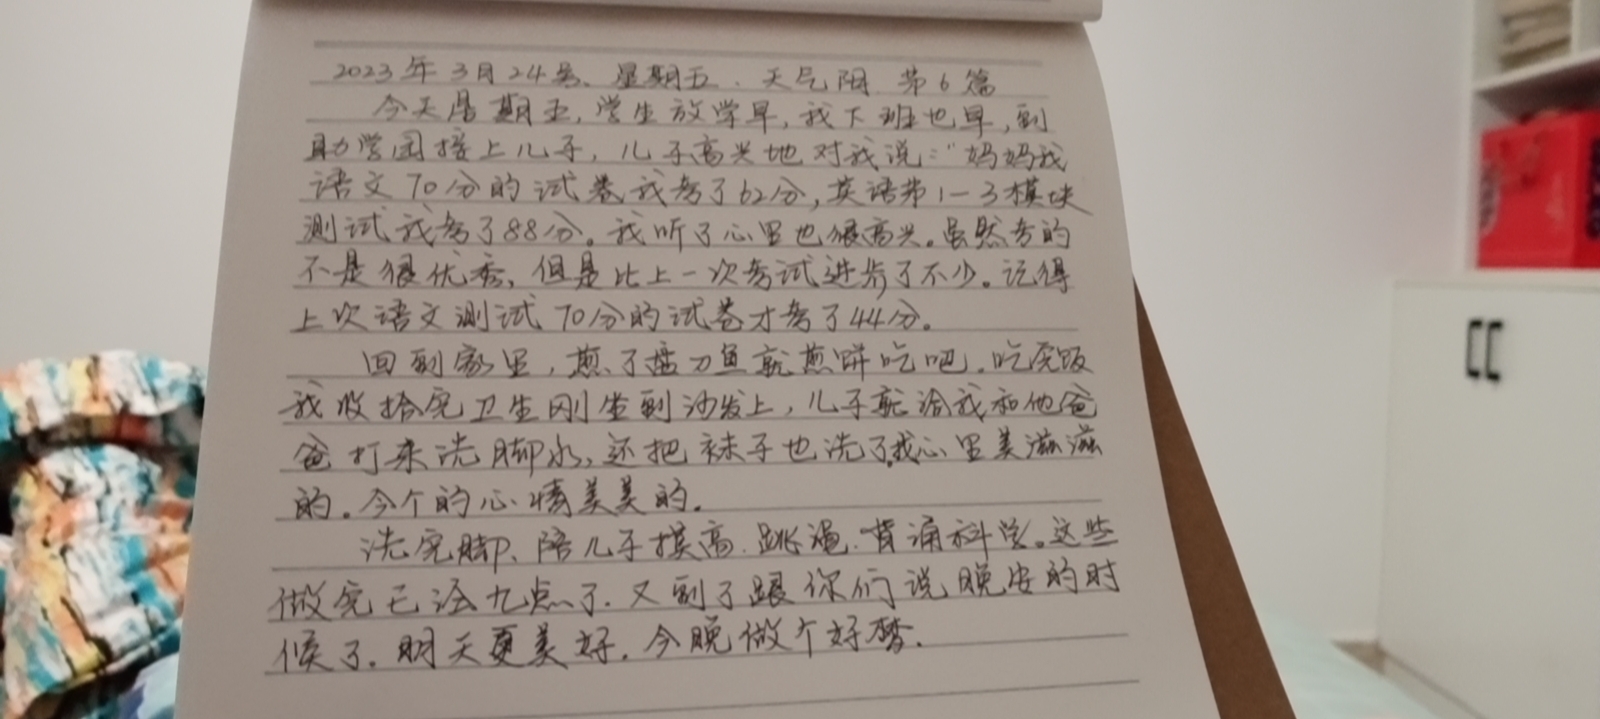 2023年3月24号、星期五、天气阴 第6篇
今天星期五,学生放学早,我下班也早,到
助学园接上儿子,儿子高兴地对我说:“妈妈我
语文70分的试卷我考了62分,英语第1-3模块
测试我考了88分。我听了心里也很高兴。虽然考的
不是很优秀,但是比上一次考试进步了不少。记得
上次语文测试70分的试卷才考了44分。
回到家里,煎了盘刀鱼就煎饼吃吧。吃完饭
我收拾完卫生刚坐到沙发上,儿子就给我和他爸
爸打来洗脚水,还把袜子也洗了,我心里美滋滋
的。今个的心情美美的。
洗完脚、陪儿子摸高、跳绳、背诵科学。这些
做完已经九点了。又到了跟你们说晚安的时
候了。明天更美好。今晚做个好梦。